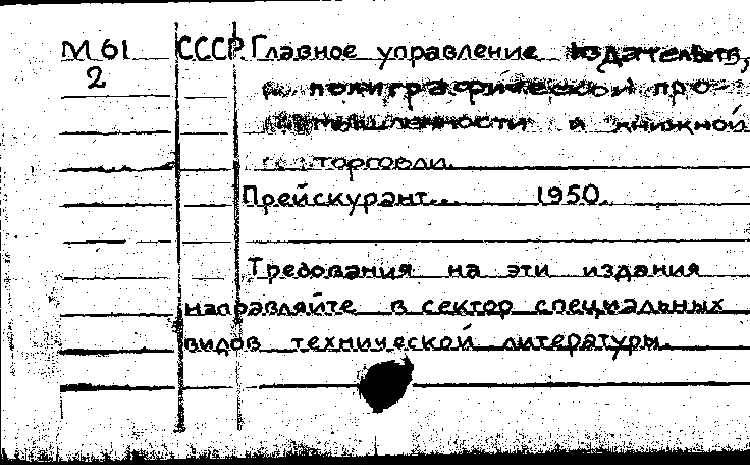 М61 СССР. Главное управление издательств,
2 полиграфической про-
мышленности и книжной
торговли.
Прейскурант... 1950.
Требования на эти издания
направляйте в сектор специальных
видов технической литературы.